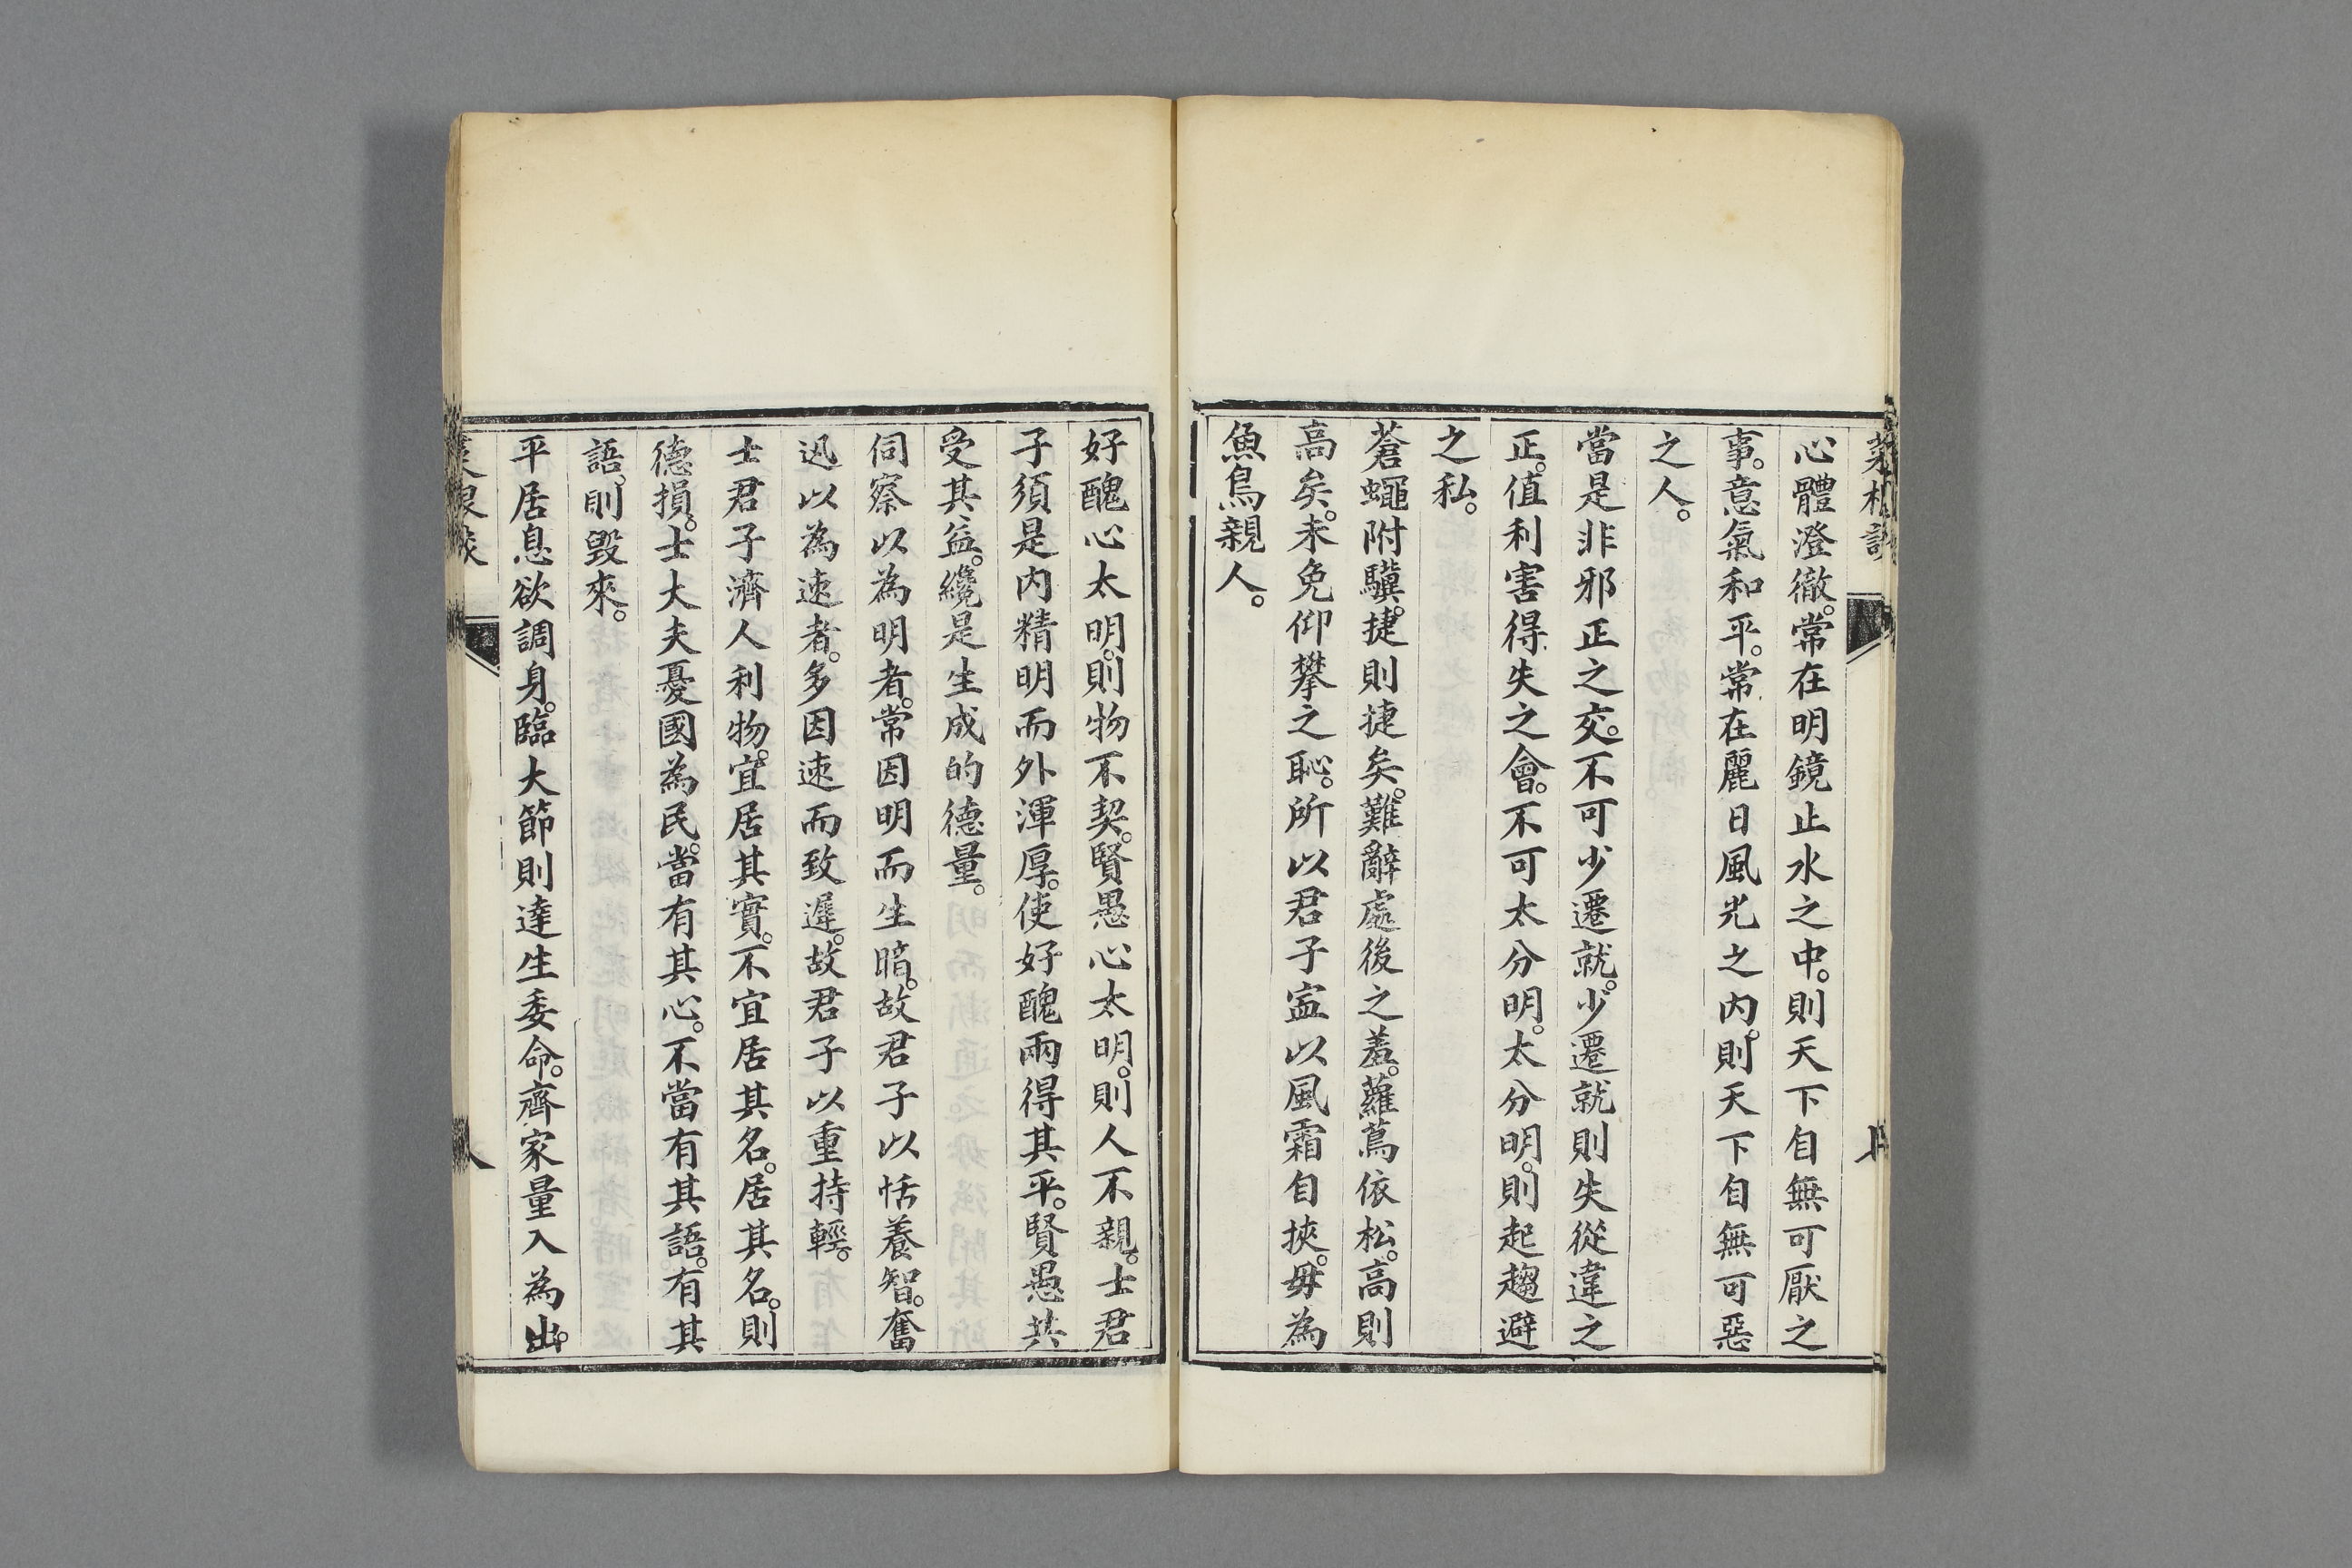 心體澄徹。常在明鏡止水之中。則天下自無可厭之
事。意氣和平。常在麗日風光之內。則天下自無可惡
之人。
當是非邪正之交。不可少遷就。少遷就則失從違之
正。值利害得失之會。不可太分明。太分明。則起趨避
之私。
蒼蠅附驥。捷則捷矣。難辭處後之羞。蘿蔦依松。高則
高矣。未免仰攀之恥。所以君子寧以風霜自挾。毋為
魚鳥親人。
好醜心太明。則物不契。賢愚心太明。則人不親。士君
子須是内精明而外渾厚。使好醜兩得其平。賢愚共
受其益。纔是生成的德量。
伺察以為明者。常因明而生暗。故君子以恬養智。奮
迅以為速者。多因速而致遲。故君子以重持輕。
士君子濟人利物。宜居其實。不宜居其名。居其名。則
德損。士大夫憂國為民。當有其心。不當有其語。有其
語。則毀來。
平居息欲調身。臨大節則達生委命。齊家量入為出。